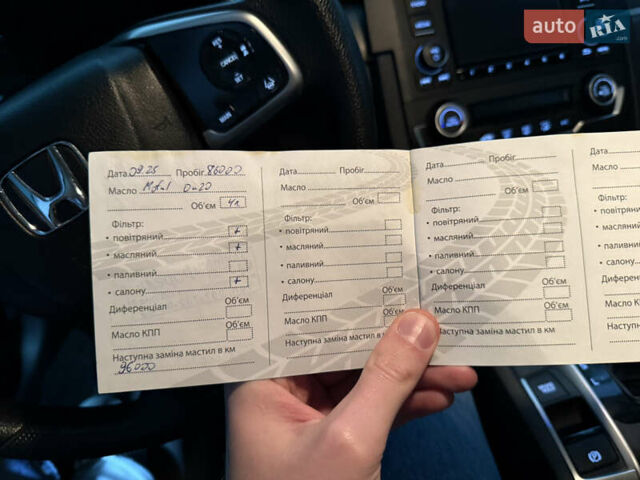 auto RIA .com
CANCEL
SET
Дата 09.25 Пробіг 86000
Масло Motul 0w20
Об'єм 4л
Фільтр:
• повітряний +
• масляний +
• паливний
• салону +
Диференціал Об'єм
Масло КПП Об'єм
Наступна заміна мастил в км
96000
Дата Пробіг
Масло
Об'єм
Фільтр:
• повітряний
• масляний
• паливний
• салону
Диференціал Об'єм
Масло КПП Об'єм
Наступна заміна мастил в км
Дата Пробіг
Масло
Об'єм
Фільтр:
• повітряний
• масляний
• паливний
• салону
Диференціал Об'єм
Масло КПП Об'єм
Наступна заміна мастил в км
Дата
Масло
Фільтр:
• повітр
• масля
• палив
• салон
Дифере
Масло К
Наступн